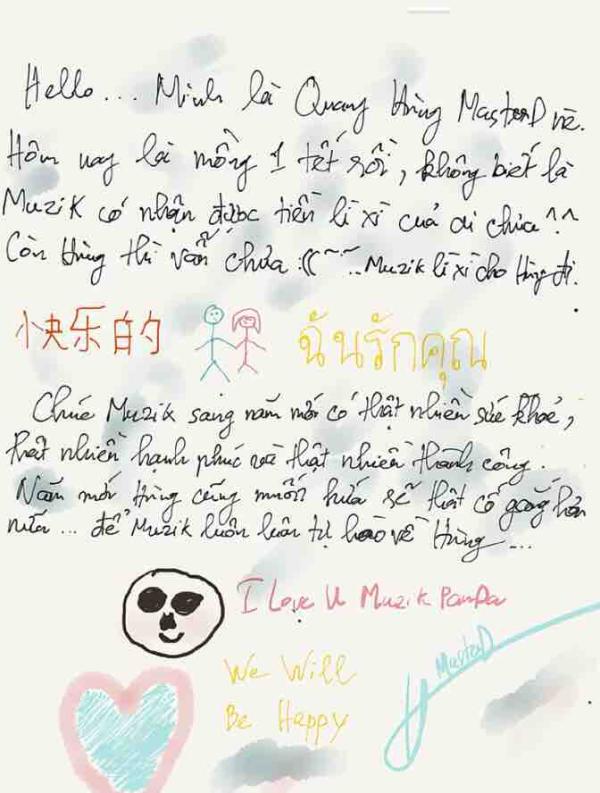 Hello... Mình là Quang Hùng MasterD nè.
Hôm nay là mồng 1 tết rồi, không biết là
Muzik có nhận được tiền lì xì của ai chưa ^^
Còn Hùng thì vẫn chưa :(( ~~.. Muzik lì xì cho Hùng đi.
快乐的
ฉันรักคุณ
Chúc Muzik sang năm mới có thật nhiều sức khoẻ,
thật nhiều hạnh phúc và thật nhiều thành công.
Năm mới Hùng cũng muốn hứa sẽ thật cố gắng hơn
nữa... để Muzik luôn luôn tự hào về Hùng...
I Love U Muzik Panda
We Will
Be Happy
MasterD